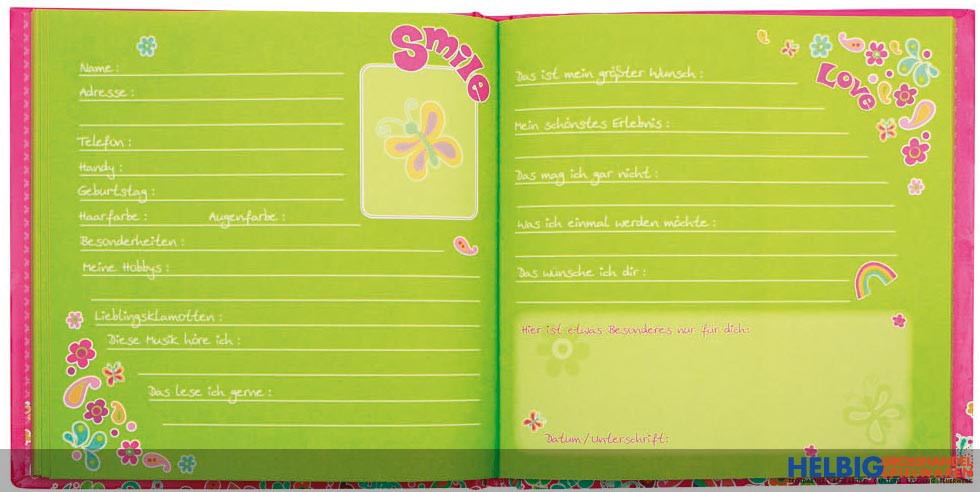 Smile
Name :
Adresse :
Telefon :
Handy :
Geburtstag :
Haarfarbe : Augenfarbe :
Besonderheiten :
Meine Hobbys :
Lieblingsklamotten :
Diese Musik höre ich :
Das lese ich gerne :
Love
Das ist mein größter Wunsch :
Mein schönstes Erlebnis :
Das mag ich gar nicht :
Was ich einmal werden möchte :
Das wünsche ich dir :
Hier ist etwas Besonderes nur für dich:
Datum/Unterschrift:
HELBIG GROSSHANDEL
SPIELWAREN